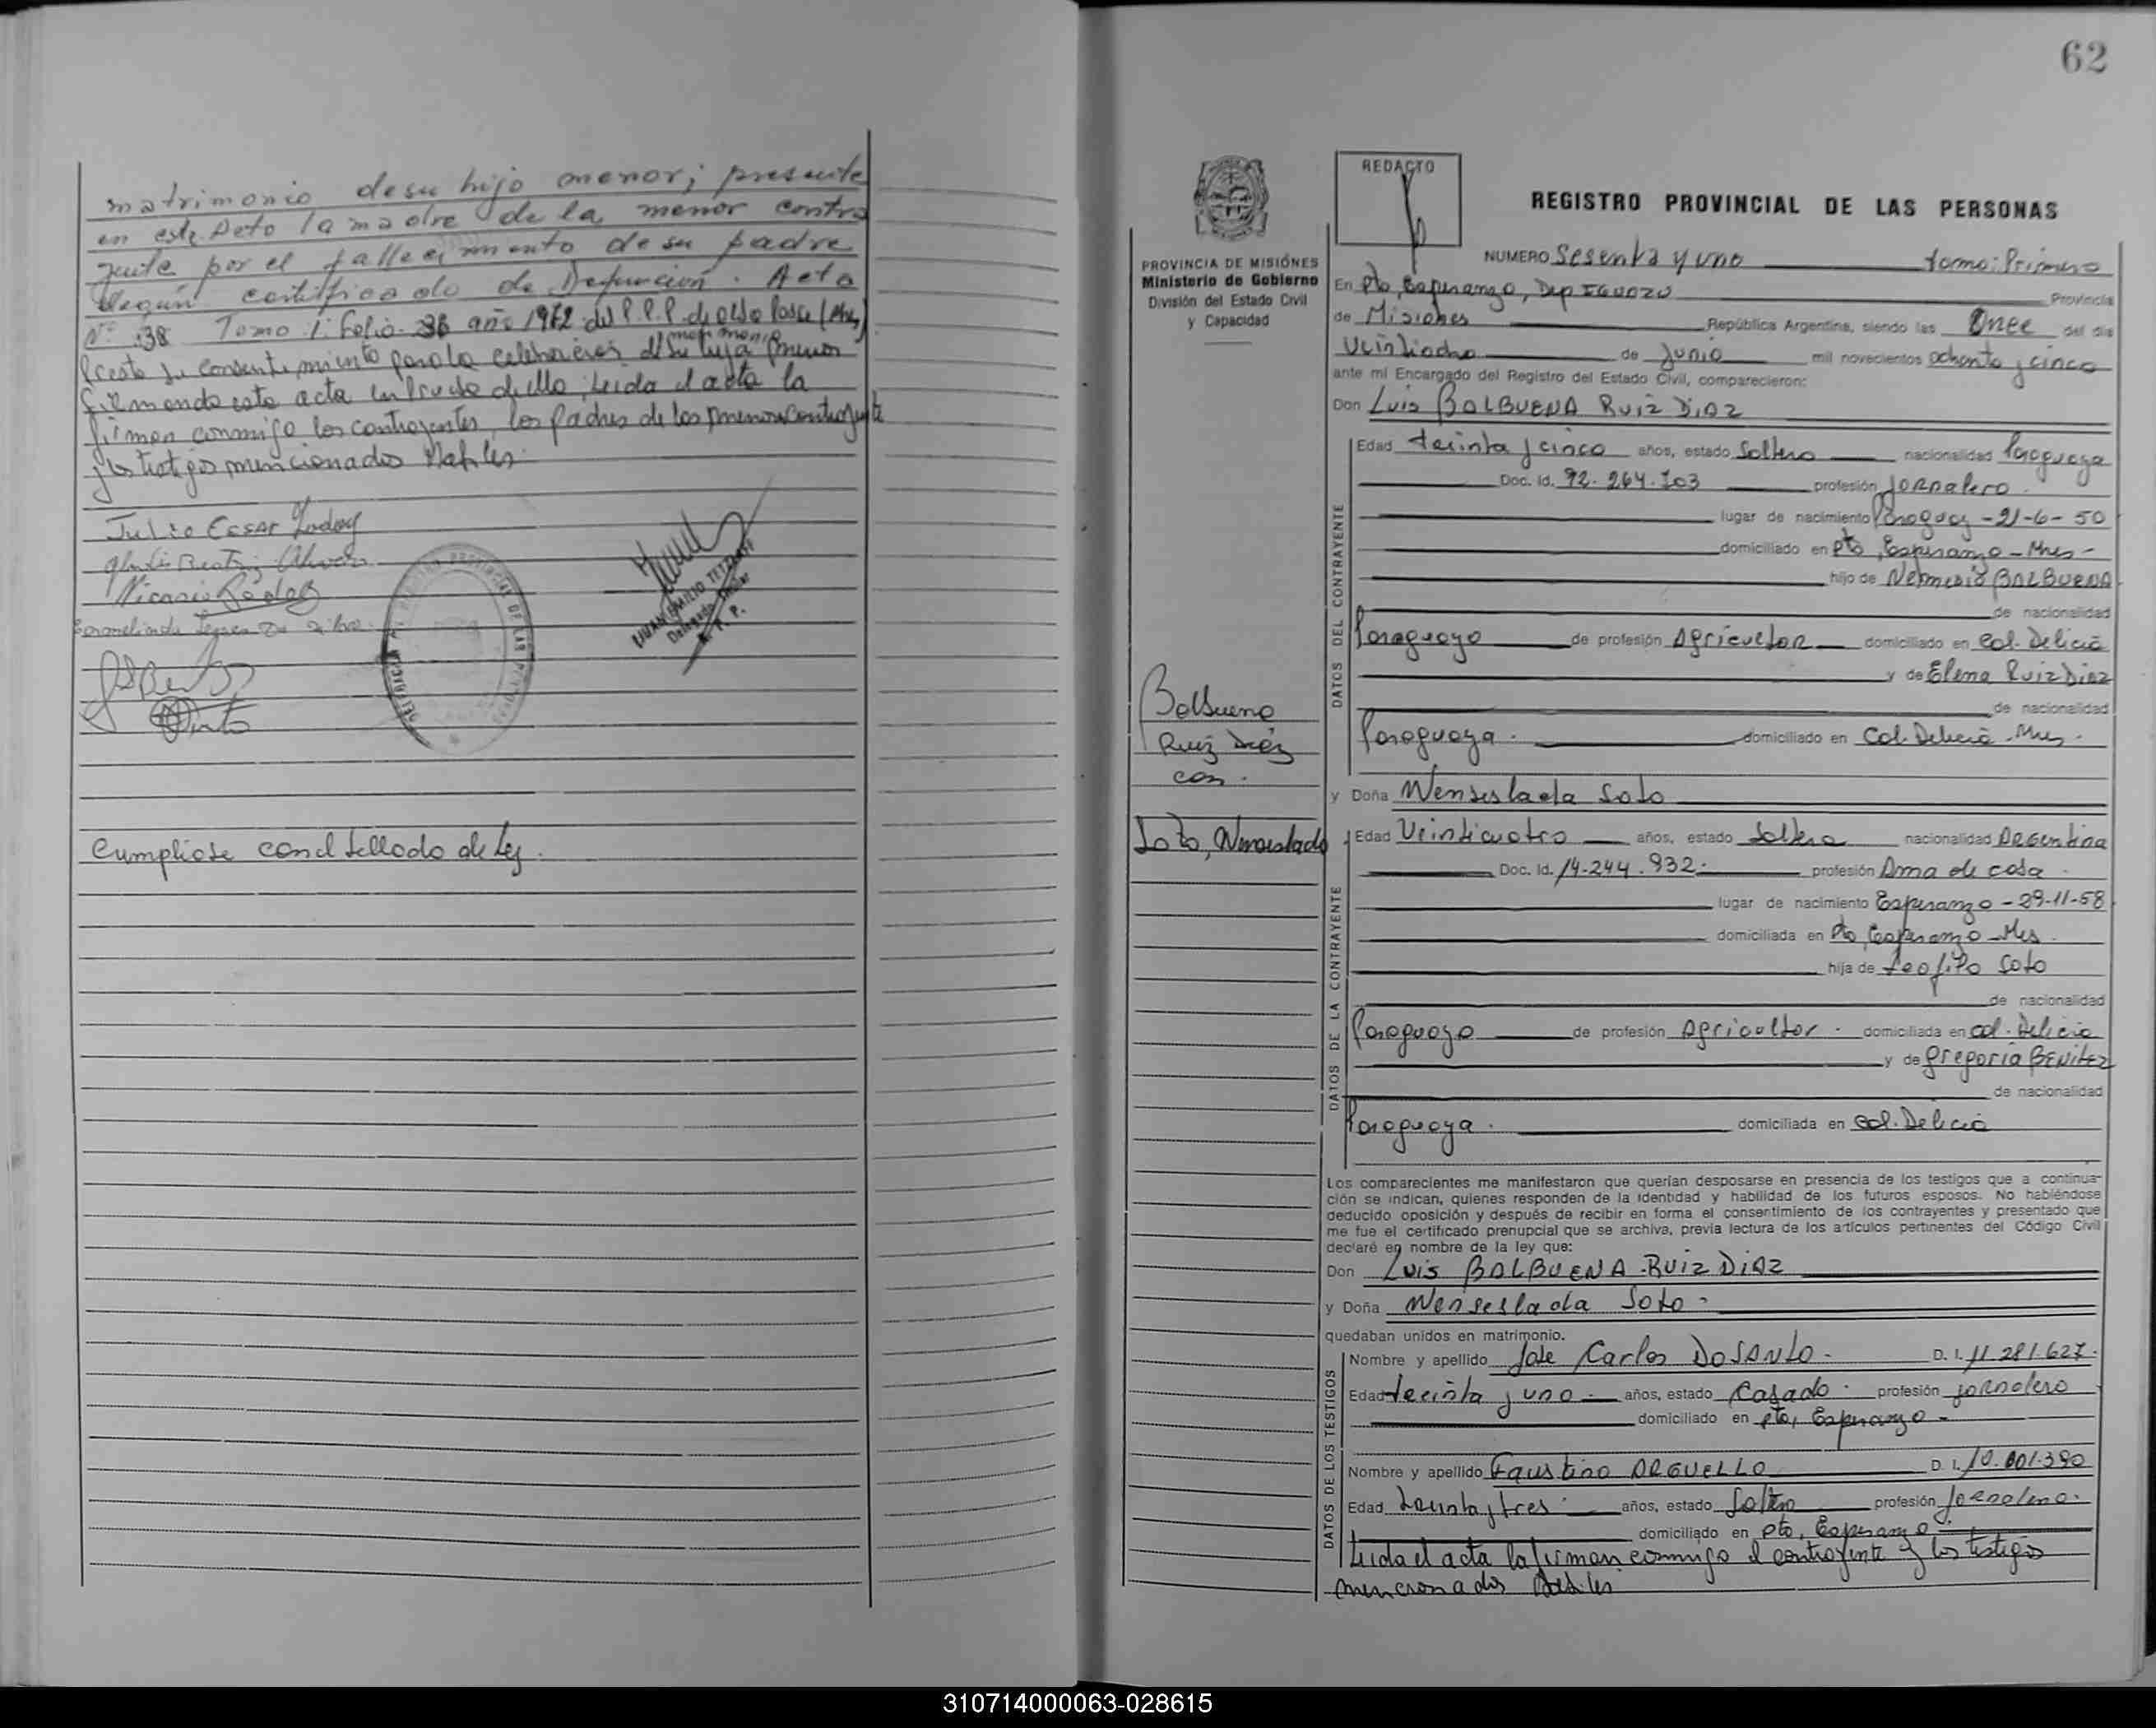 matrimonio de su hijo menor; presente
en este Acto la madre de la menor contra
yente por el fallecimiento de su padre
según certificado de Defunción. Acta
Nº 38 Tomo 1: Folio 36 año 1972 del R.P.P. de
Presta su consentimiento para la celebración matrimonio de su hija menor
firmando esta acta en prueba de ello, Leida el acta la
firman conmigo los contrayentes, los padres de los menores contrayente
y los testigos mencionados Habiles
Julio Cesar
Beatriz
JUAN EMILIO
Delegado Titular
R. P. P.
Cumpliose con el sellado de Ley.
62
REDACTO
REGISTRO PROVINCIAL DE LAS PERSONAS
PROVINCIA DE MISIONES
Ministerio de Gobierno
División del Estado Civil
y Capacidad
NUMERO Sesenta y uno tomo: Primero
En Pto, Esperanza, Dep IGUAZU Provincia
de Misiones República Argentina, siendo las Once del día
Veintiocho de Junio mil novecientos ochenta y cinco
ante mí Encargado del Registro del Estado Civil, comparecieron:
Don Luis BALBUENA RUIZ DIAZ
DATOS DEL CONTRAYENTE
Edad treinta y cinco años, estado Soltero nacionalidad Paraguaya
Doc. Id. 92.264.103 profesión Jornalero
lugar de nacimiento Paraguay -21-6-50
domiciliado en Pto, Esperanza - Mnes -
hijo de Nemesio BALBUENA
de nacionalidad
Paraguaya de profesión Agricultor domiciliado en Col. Delicia
y de Elena Ruiz Diaz
de nacionalidad
Paraguaya. domiciliado en Col. Delicia - Mnes.
Balbuena
Ruiz Diaz
con.
Soto, Wenseslada
y Doña Wenseslada Soto
DATOS DE LA CONTRAYENTE
Edad Veinticuatro años, estado Soltera nacionalidad Argentina
Doc. Id. 14.244.932. profesión Ama de casa.
lugar de nacimiento Esperanza - 29-11-58
domiciliada en Pto, Esperanza - Mes.
hija de Teofilo Soto
de nacionalidad
Paraguaya de profesión Agricultor. domiciliada en Col. Delicia
y de Gregoria BENITEZ
de nacionalidad
Paraguaya. domiciliada en Col. Delicia
Los comparecientes me manifestaron que querían desposarse en presencia de los testigos que a continua-
ción se indican, quienes responden de la identidad y habilidad de los futuros esposos. No habiéndose
deducido oposición y después de recibir en forma el consentimiento de los contrayentes y presentado que
me fue el certificado prenupcial que se archiva, previa lectura de los artículos pertinentes del Código Civil
declaré en nombre de la ley que:
Don Luis BALBUENA - RUIZ DIAZ
y Doña Wenseslada Soto -
quedaban unidos en matrimonio.
DATOS DE LOS TESTIGOS
Nombre y apellido Jose Carlos DOSANTO - D. I. 11.281.627.
Edad treinta y uno - años, estado Casado. profesión jornalero
domiciliado en pto, Esperanza -
Nombre y apellido Faustino ARGUELLO D. I. 10.001.390
Edad treinta y tres. años, estado Soltero profesión Jornalero.
domiciliado en pto, Esperanza
Leida el acta la firman conmigo el contrayente y los testigos
mencionados Habiles
310714000063-028615